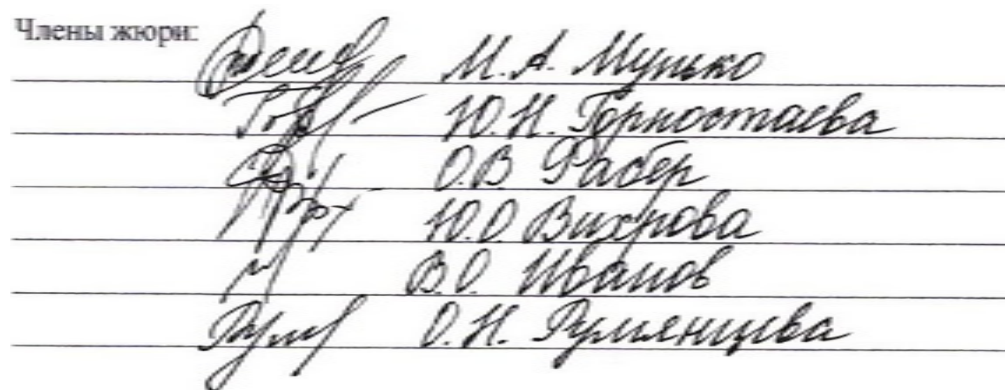 Члены жюри:
М.А. Мунько
Ю.Н. Горностаева
О.В. Фабер
Ю.О. Вихрова
В.О. Иванов
О.Н. Румянцева